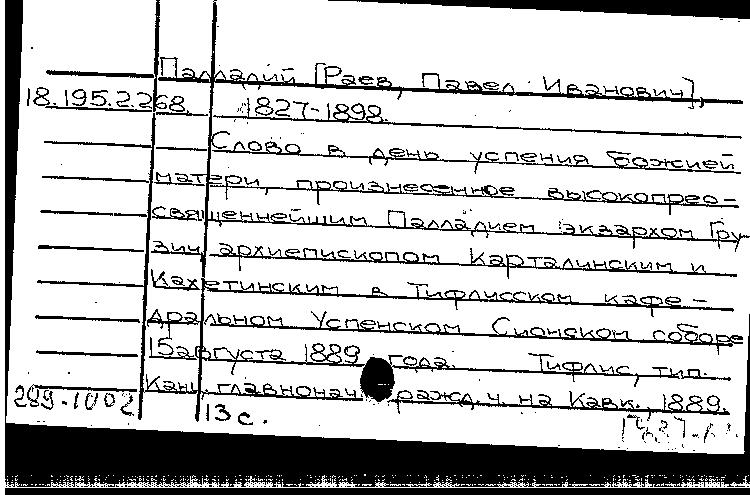 Палладий [Раев, Павел Иванович],
18.195.2.268. 1827-1898.
Слово в день успения божией
матери, произнесенное высокопрео-
священнейшим Палладием экзархом Гру-
зии, архиепископом Карталинским и
Кахетинским в Тифлисском кафе-
дральном Успенском Сионском соборе
15 августа 1889 года. Тифлис, тип.
Канц. главнонач. гражд. ч. на Кавк., 1889.
289-1002 13 с.